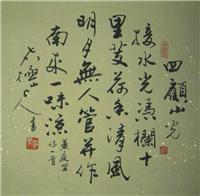 四顾山光
接水光馮欄十
里芰荷香清風
明月無人管并作
南來一味凉
黄庭坚
诗一首